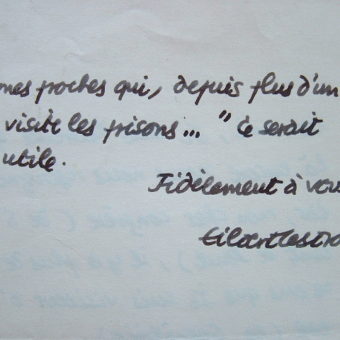 mes proches qui, depuis plus d'un
visite les prisons... " ce serait
utile.
Fidèlement à vous